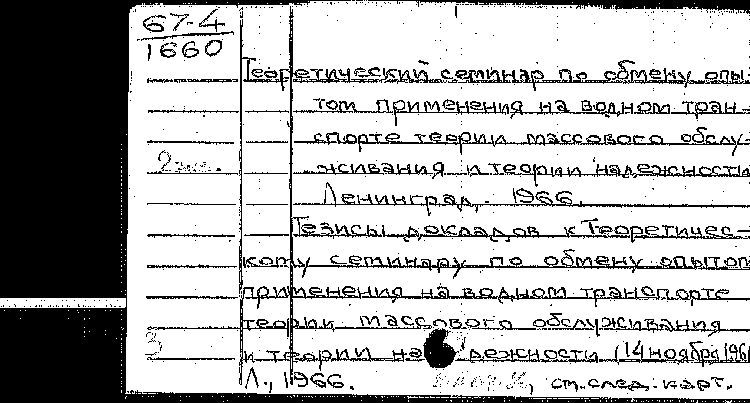 67-4
1660
Теоретический семинар по обмену опы-
том применения на водном тран-
спорте теории массового обслу-
2 экз.
живания и теории надежности
Ленинград, 1966.
Тезисы докладов к Теоретичес-
кому семинару по обмену опытом
применения на водном транспорте
теории массового обслуживания
3
и теории надежности (14 ноября 196
Л., 1966.
см. след. карт.